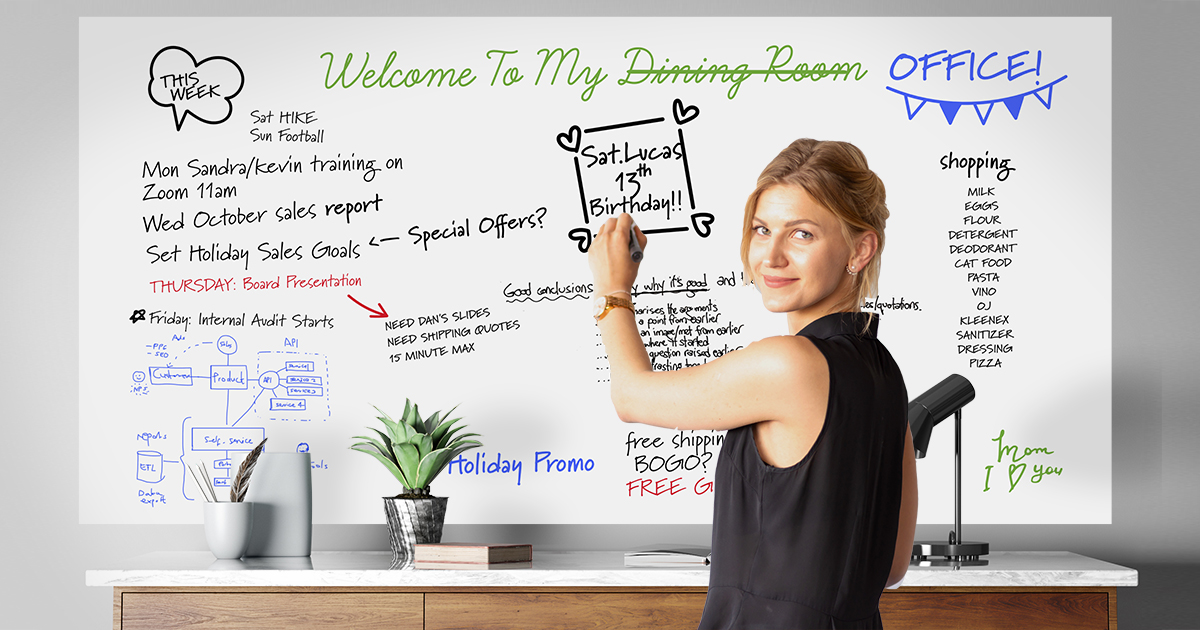 Welcome To My Dining Room OFFICE!
THIS
WEEK
Sat HIKE
Sun Football
Mon Sandra/kevin training on
Zoom 11am
Wed October sales report
Set Holiday Sales Goals ← Special Offers?
THURSDAY: Board Presentation
NEED DAN'S SLIDES
NEED SHIPPING QUOTES
15 MINUTE MAX
Friday: Internal Audit Starts
Sat. Lucas
13th
Birthday!!
shopping
MILK
EGGS
FLOUR
DETERGENT
DEODORANT
CAT FOOD
PASTA
VINO
OJ
KLEENEX
SANITIZER
DRESSING
PIZZA
Good conclusions
why it's good and
/quotations.
the arguments
a point from earlier
an image/met from earlier
where it started
question raised
API
Product
API
service 4
Self. service
reports
ETL
Data
export
Holiday Promo
free shippin
BOGO?
FREE G
Mom
I you